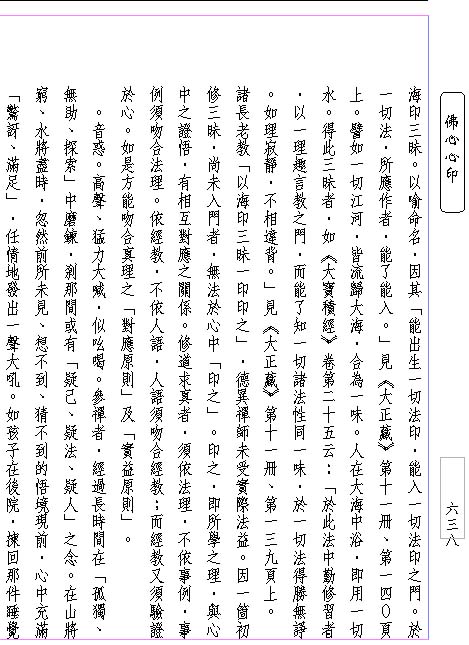 佛心心印
海印三昧。以喻命名，因其「能出生一切法印，能入一切法印之門。於
一切法，所應作者，能了能入。」見《大正藏》第十一冊、第一四〇頁
上。譬如一切江河，皆流歸大海，合為一味。人在大海中浴，即用一切
水。得此三昧者，如《大寶積經》卷第二十五云：「於此法中勤修習者
，以一理趣言教之門，而能了知一切諸法性同一味，於一切法得勝無諍
。如理寂靜，不相違背。」見《大正藏》第十一冊、第一三九頁上。
諸長老教「以海印三昧一印印之」，德異禪師未受實際法益。因一箇初
修三昧，尚未入門者，無法於心中「印之」。印之，即所學之理，與心
中之證悟，有相互對應之關係。修道求真者，須依法理，不依事例，事
例須吻合法理。依經教，不依人語，人語須吻合經教；而經教又須驗證
於心。如是方能吻合真理之「對應原則」及「實益原則」。
。音惑。高聲、猛力大喊，似吆喝。參禪者，經過長時間在「孤獨、
無助、探索」中磨鍊，剎那間或有「疑己、疑法、疑人」之念。在山將
窮、水將盡時，忽然前所未見、想不到、猜不到的悟境現前，心中充滿
「驚訝、滿足」，任情地發出一聲大吼。如孩子在後院，揀回那件睡覺
六三八